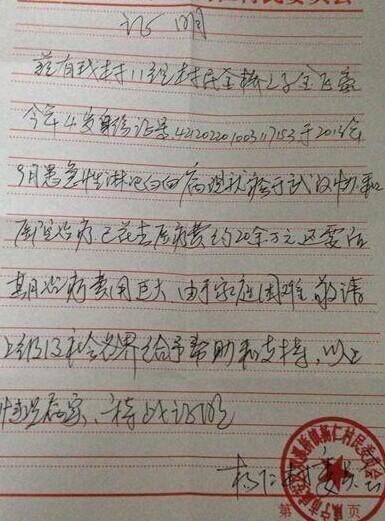 村民委员会
证明
兹有我村11组村民金桥之子金
今年4岁身份证号:421202201003117153于2013年
9月患急性淋巴白血病现就诊于武汉协和
医院治疗.已花去医疗费约20余万元.还要治
其月治疗费用巨大.由于家庭困难.敬请
上级及社会各界给予帮助和支持,以上
情况属实、特此证明
杨仁村委会
第 页